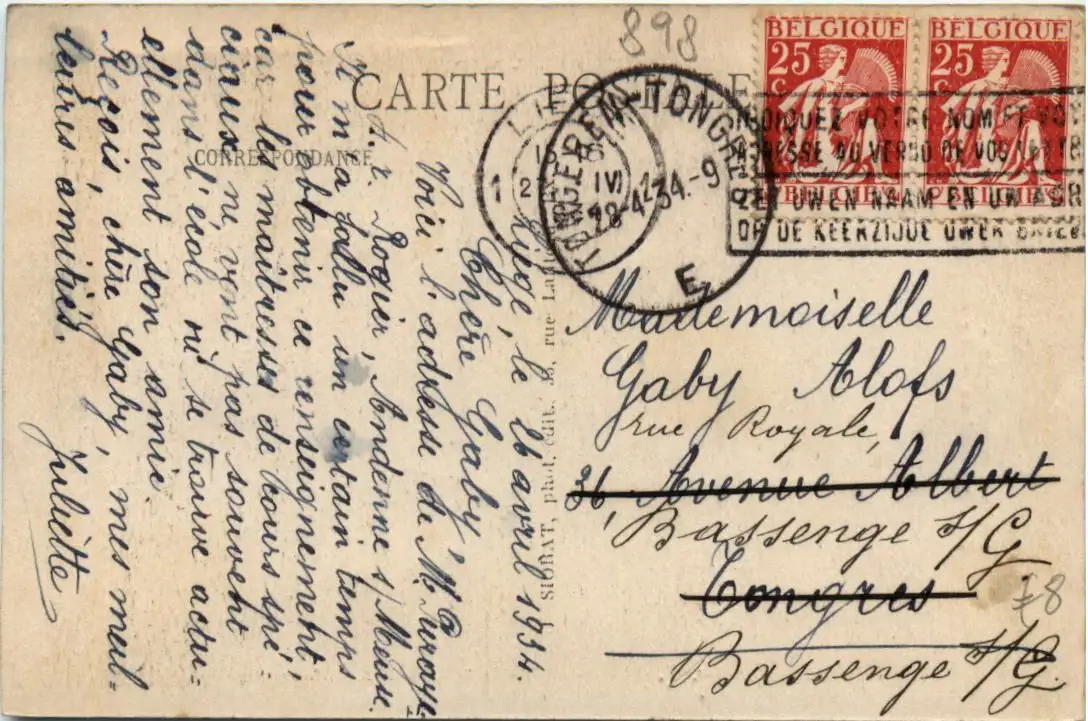 898
CARTE POSTALE
CORRESPONDANCE
BELGIQUE BELGIQUE
25 25
C C
BELGIË BELGIË
1
TONGEREN-TONGRES
28-4.34.-9
E
INDIQUEZ VOTRE NOM ET VOTRE
ADRESSE AU VERSO DE VOS
UWEN NAAM EN UW ADR
OP DE KEERZIJDE UWER BRIEV
Liège, le 26 avril 1934.
Chère Gaby
Voici l'adresse de Mr
A. r. Rogier, Andenne s/ Meuse.
Il m'a fallu un certain temps
pour obtenir ce renseignement,
car les maîtresses de cours spé-
ciaux ne vont pas souvent
dans l'école où se trouve actu-
ellement son amie.
Reçois, chère Gaby, mes meil-
leures amitiés.
Juliette
SIORAT, phot. édit., rue
Mademoiselle
Gaby Alofs
rue Royale,
36, Avenue Albert
Bassenge s/G
Tongres
Bassenge s/G.
78